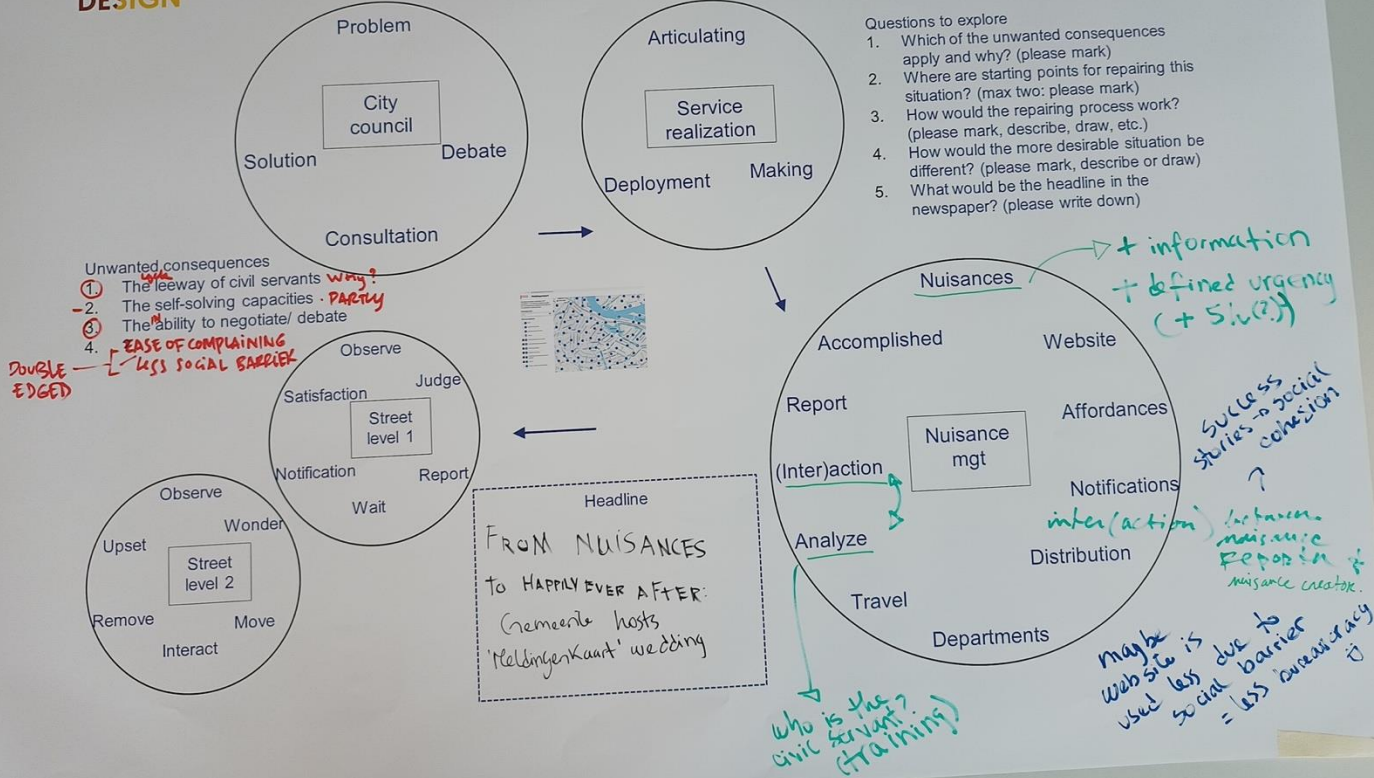 DESIGN
Problem
City
council
Solution
Debate
Consultation
Articulating
Service
realization
Deployment
Making
Questions to explore
1. Which of the unwanted consequences
apply and why? (please mark)
2. Where are starting points for repairing this
situation? (max two: please mark)
3. How would the repairing process work?
(please mark, describe, draw, etc.)
4. How would the more desirable situation be
different? (please mark, describe or draw)
5. What would be the headline in the
newspaper? (please write down)
Unwanted consequences
1. The leeway of civil servants WHY?
-2. The self-solving capacities · PARTLY
3. The inability to negotiate/ debate
4. EASE OF COMPLAINING
LESS SOCIAL BARRIER
DOUBLE
EDGED
Observe
Judge
Satisfaction
Street
level 1
Notification
Report
Wait
Observe
Wonder
Upset
Street
level 2
Remove
Move
Interact
Headline
FROM NUISANCES
TO HAPPILY EVER AFTER:
Gemeente hosts
'MeldingenKaart' wedding
Nuisances
+ information
+ defined urgency
Accomplished
Website
Report
Affordances
Nuisance
mgt
(Inter)action
Notifications
Analyze
Distribution
Travel
Departments
success
stories → social
cohesion
inter(action) between
nuisance
reporter +
nuisance creator.
maybe
website is
used less due to
social barrier
= less bureaucracy
who is the
civic servant?
(training)